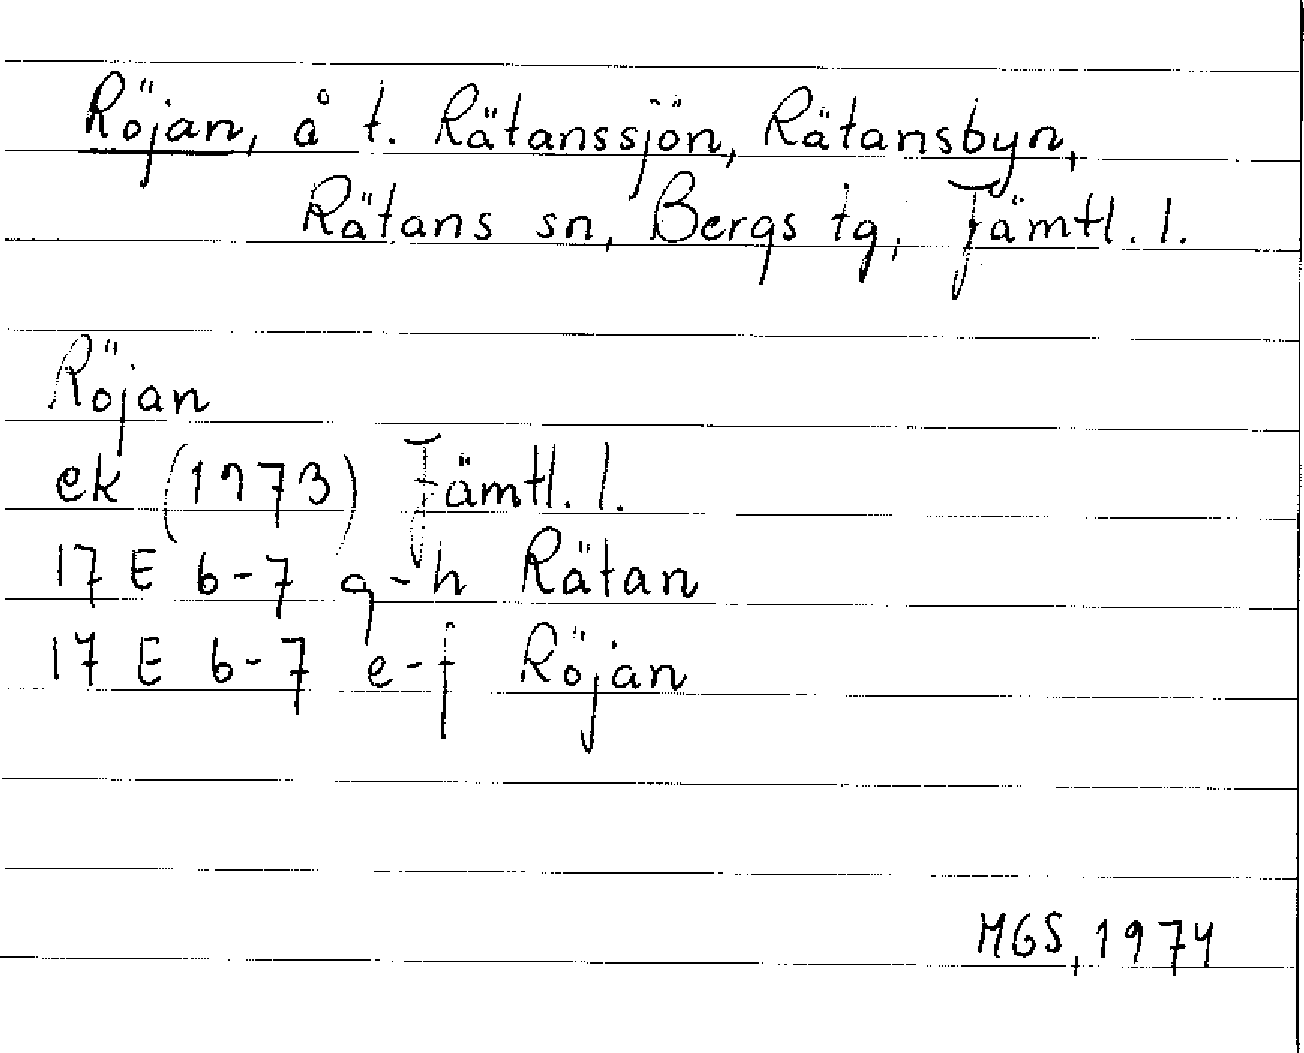 Röjan, å t. Rätanssjön, Rätansbyn,
Rätans sn, Bergs tg, Jämtl. l.
Röjan
ek (1973) Jämtl. l.
17 E 6-7 g-h Rätan
17 E 6-7 e-f Röjan
MGS, 1974